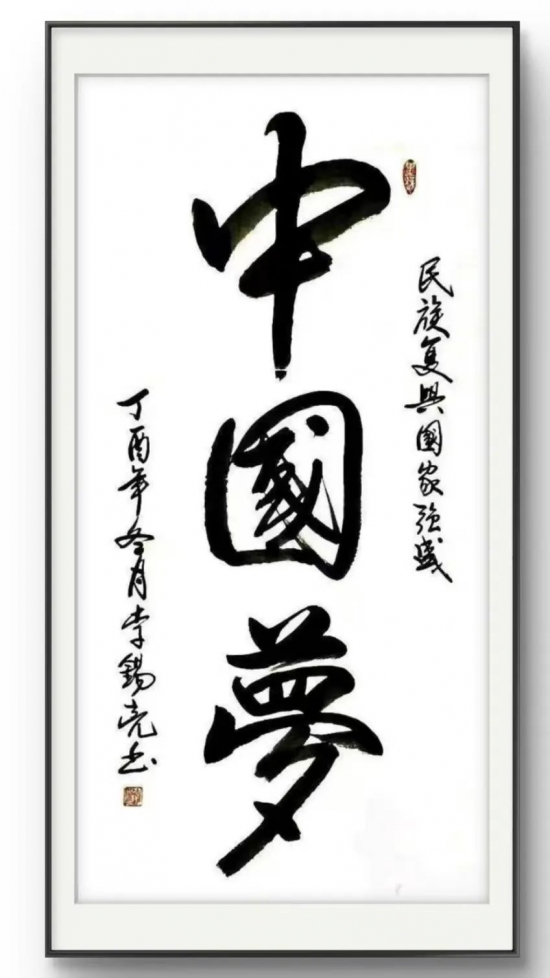 民族复興國家强盛
中國夢
丁酉年冬月李錫亮书